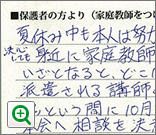 ■保護者の方より（家庭教師をつ
夏休み中も本人は努力
決心
身近に家庭教師
いざとなると、どこに
派遣される講師の
という間に10月
会へ相談を決